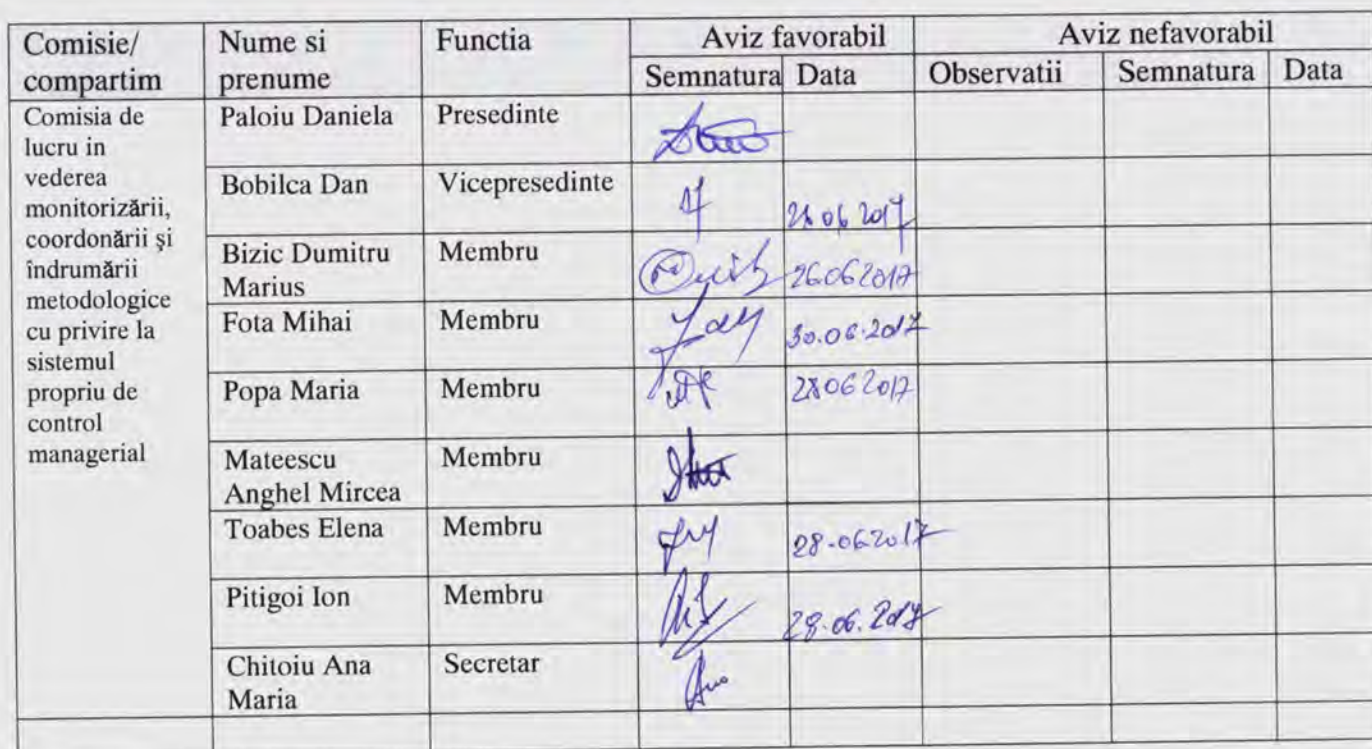 Comisie/ compartim Nume si prenume Functia Aviz favorabil Aviz nefavorabil
Semnatura Data Observatii Semnatura Data
Comisia de
lucru in
vederea
monitorizării,
coordonării şi
îndrumării
metodologice
cu privire la
sistemul
propriu de
control
managerial
Paloiu Daniela Presedinte
Bobilca Dan Vicepresedinte
Bizic Dumitru
Marius Membru 26062017
Fota Mihai Membru 30.06.2017
Popa Maria Membru 28062017
Mateescu
Anghel Mircea Membru
Toabes Elena Membru 28.062017
Pitigoi Ion Membru 28.06.2017
Chitoiu Ana
Maria Secretar